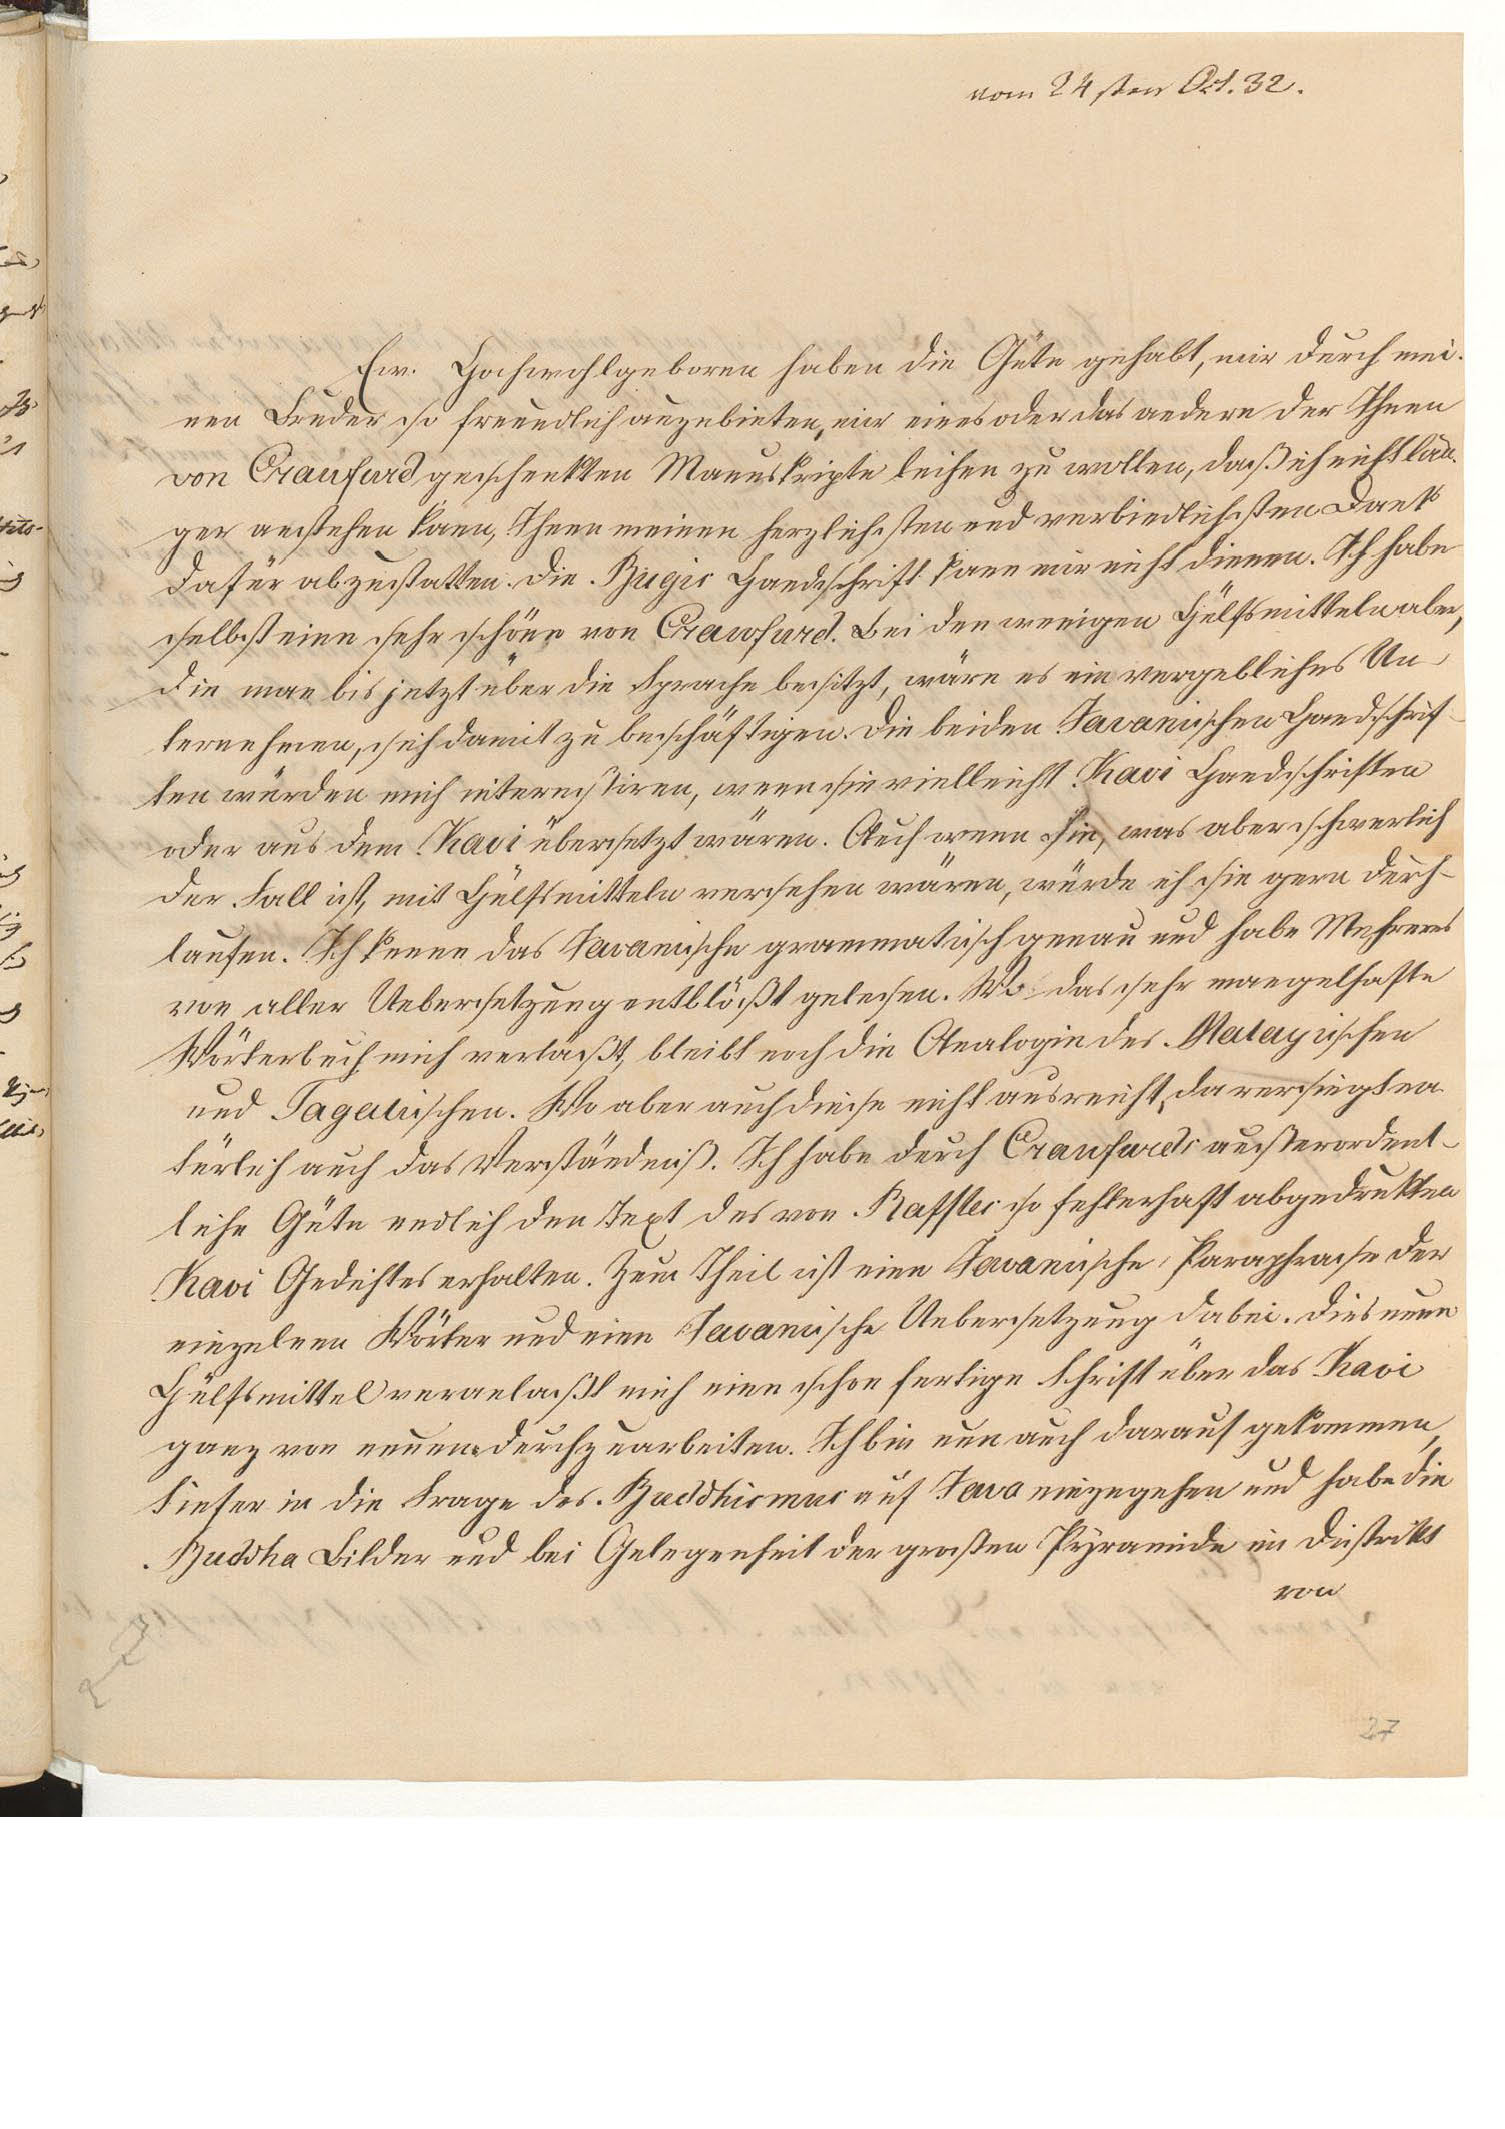 vom 24sten Oct. 32.
Ew. Hochwohlgeboren haben die Güte gehabt, mir durch mei-
nen Bruder so freundlich anzubieten, mir eines oder das andere der Ihnen
von Crawfurd geschenkten Manuskripte leihen zu wollen, daß ich nicht län-
ger anstehen kann, Ihnen meinen herzlichsten und verbindlichsten Dank
dafür abzustatten. Die Bugis Handschrift kann mir nicht dienen. Ich habe
selbst eine sehr schöne von Crawfurd. Bei den wenigen Hülfsmitteln aber,
die man bis jetzt über die Sprache besitzt, wäre es ein vergebliches Un-
ternehmen, sich damit zu beschäftigen. Die beiden Javanischen Handschrif-
ten würden mich interessiren, wenn sie vielleicht Kavi Handschriften
oder aus dem Kavi übersetzt wären. Auch wenn sie, was aber schwerlich
der Fall ist, mit Hülfsmitteln versehen wären, würde ich sie gern durch-
laufen. Ich kenne das Javanische grammatisch genau und habe Mehreres
von aller Uebersetzung entblößt gelesen. Wo das sehr mangelhafte
Wörterbuch mich verläßt, bleibt noch die Analogie des Malayischen
und Tagalischen. Wo aber auch diese nicht ausreicht, da versiegt na
türlich auch das Verständniß. Ich habe durch Crawfurds außerordent-
liche Güte endlich den Text des von Raffles so fehlerhaft abgedrukten
Kavi Gedichtes erhalten. Zum Theil ist eine Javanische Paraphrase der
einzelnen Wörter und eine Javanische Uebersetzung dabei. Dies neue
Hülfsmittel veranlaßt mich eine schon fertige Schrift über das Kavi
ganz von neuem durchzuarbeiten. Ich bin nun auch darauf gekommen,
tiefer in die Frage des Buddhismus auf Java einzugehen und habe die
Buddha Bilder und bei Gelegenheit der großen Pyramide im Distrikt
von
27